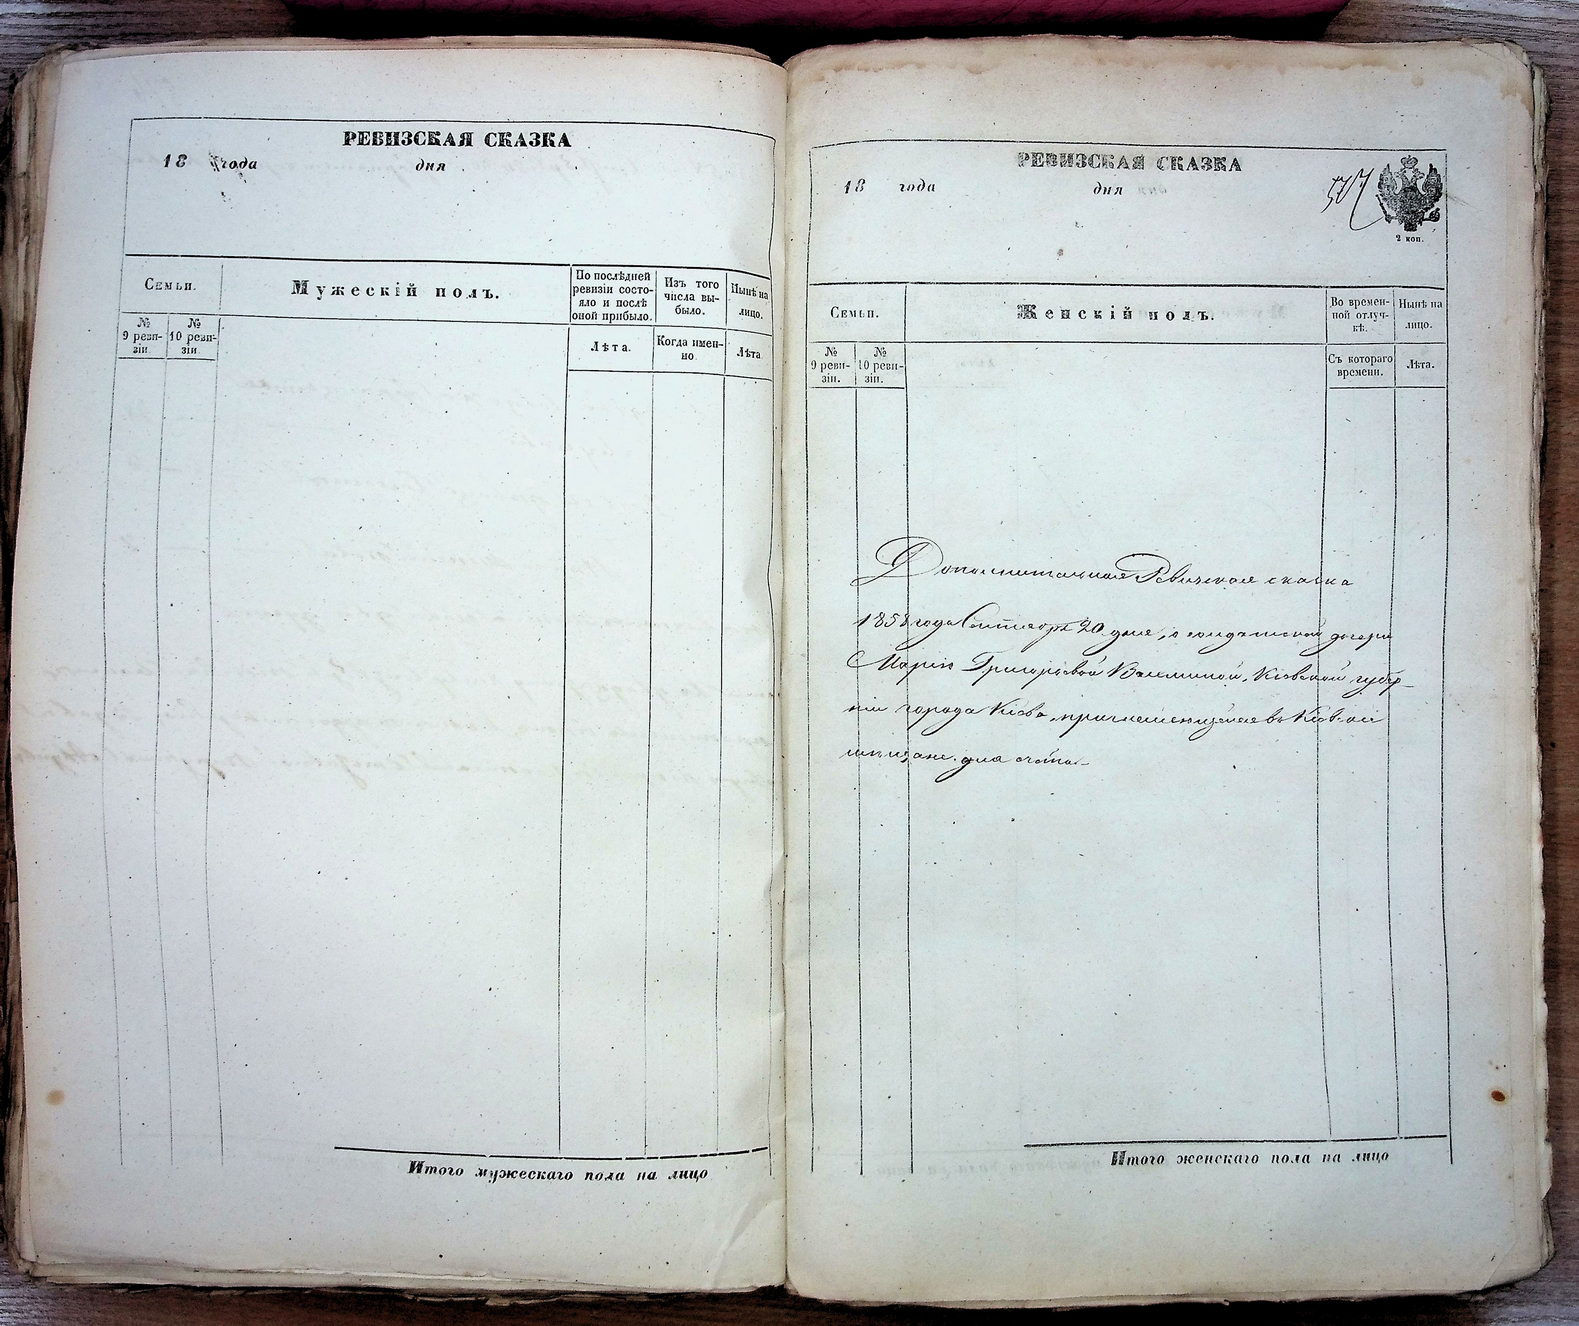 РЕВИЗСКАЯ СКАЗКА
18 года дня
Семьи.
Мужескій полъ.
По послѣдней ревизіи состояло и послѣ оной прибыло.
Изъ того числа выбыло.
Нынѣ на лицо.
№ 9 ревизіи
№ 10 ревизіи
Лѣта.
Когда именно
Лѣта
Итого мужескаго пола на лицо
РЕВИЗСКАЯ СКАЗКА
18 года дня
507
2 коп.
Семьи.
Женскій полъ.
Во временной отлучкѣ.
Нынѣ на лицо.
№ 9 ревизіи.
№ 10 ревизіи.
Съ котораго времени.
Лѣта.
Дополнительная Ревизская сказка
1858 года Сентября 20 дня, о солдатской дочери
Маріи Григорьевой, Кіевской губер-
ніи города Кіева, въ Кіевскіе
мещане для счёта
Итого женскаго пола на лицо